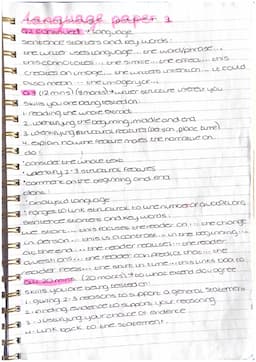 language paper 1
Q2 continued • language
sentence starters and key words:
the writer uses language... the word/phrase...
this connotates... the simile... the effect... this
creates an image... the writers intention... it could
also mean... the metaphor...
Q3 (12 mins) (8 marks) • writer structure interest you
skills you are being tested on:
1. reading the whole extract
2. identifying the beginning middle and end
3. identifying structural features (person, place, time)
4. explain how the feature moves the narrative on
do:
• consider the whole text
• identify 2-3 structural features
• comment on the beginning and end
dont:
• analyse language
• forget to link structural to the
sentence starters and key words:
we start... this focuses the reader on... the change
in person... this is a contrast... in the beginning...
at the end... the reader realises... the reader
questions... the reader can predict that... the
reader feels... the shift in time... this links back to
Q4 20 mins (20 marks) • to what extend do u agree
skills you are being tested on:
1. giving 2-3 reasons to support a general statement
2. finding evidence to support your reasoning
3. justifying your choice of evidence
4. link back to the statement.